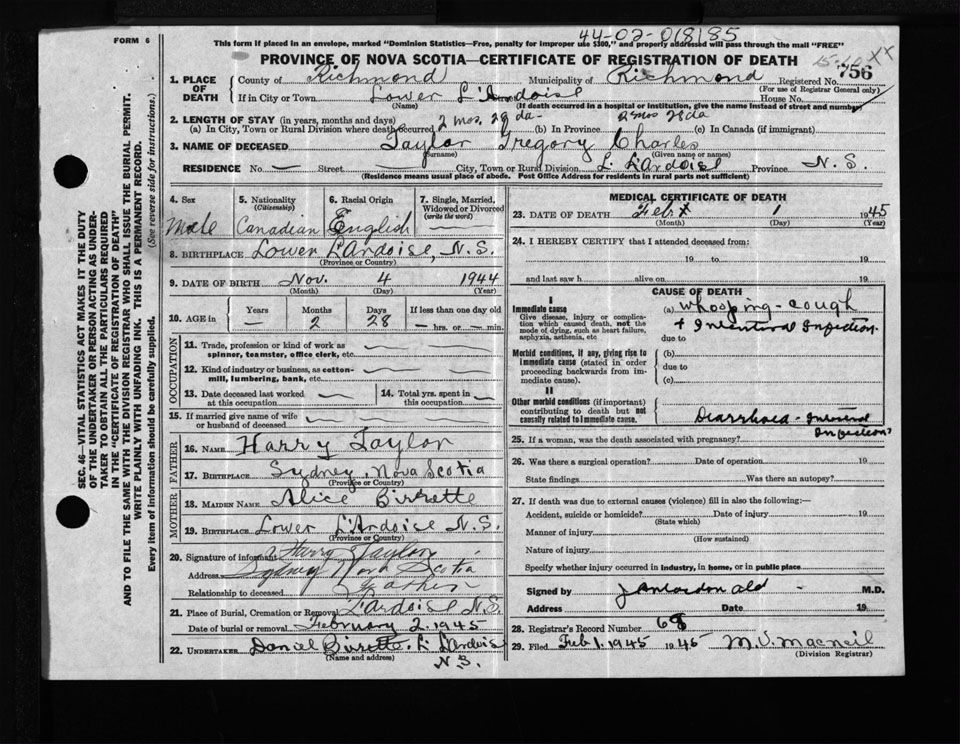 FORM 6
44-02-018185
This form if placed in an envelope, marked "Dominion Statistics—Free, penalty for improper use $300," and properly addressed will pass through the mail "FREE"
PROVINCE OF NOVA SCOTIA—CERTIFICATE OF REGISTRATION OF DEATH
1. PLACE OF DEATH County of Richmond Municipality of Richmond Registered No. 756
(For use of Registrar General only)
If in City or Town Lower L'Ardoise House No.
(Name) (If death occurred in a hospital or institution, give the name instead of street and number)
2. LENGTH OF STAY (in years, months and days)
(a) In City, Town or Rural Division where death occurred 2 mos. 29 da- (b) In Province 2 mos 28 da (c) In Canada (if immigrant)
3. NAME OF DECEASED Taylor Gregory Charles
(Surname) (Given name or names)
RESIDENCE No. — Street — City, Town or Rural Division L. L'Ardoise Province N. S.
(Residence means usual place of abode. Post Office Address for residents in rural parts not sufficient)
4. Sex Male
5. Nationality (Citizenship) Canadian
6. Racial Origin English
7. Single, Married, Widowed or Divorced (write the word) —
8. BIRTHPLACE Lower L'Ardoise, N. S.
(Province or Country)
9. DATE OF BIRTH Nov. 4 1944
(Month) (Day) (Year)
10. AGE in Years — Months 2 Days 28 If less than one day old — hrs. or — min.
OCCUPATION
11. Trade, profession or kind of work as spinner, teamster, office clerk, etc.
12. Kind of industry or business, as cotton-mill, lumbering, bank, etc.
13. Date deceased last worked at this occupation
14. Total yrs. spent in this occupation
15. If married give name of wife or husband of deceased
FATHER
16. NAME Harry Taylor
17. BIRTHPLACE Sydney, Nova Scotia
(Province or Country)
MOTHER
18. MAIDEN NAME Alice
19. BIRTHPLACE Lower L'Ardoise N. S.
(Province or Country)
20. Signature of informant Harry Taylor
Address Sydney Nova Scotia
Relationship to deceased Father
21. Place of Burial, Cremation or Removal L'Ardoise N.S.
Date of burial or removal February 2. 1945
22. UNDERTAKER Daniel L. L'Ardoise
(Name and address)
N S.
MEDICAL CERTIFICATE OF DEATH
23. DATE OF DEATH Feb. 1 1945
(Month) (Day) (Year)
24. I HEREBY CERTIFY that I attended deceased from:
19 to 19
and last saw h alive on 19
CAUSE OF DEATH
I
Immediate cause
Give disease, injury or complication which caused death, not the mode of dying, such as heart failure, asphyxia, asthenia, etc
(a) Whooping-cough
+ Intestinal Infection.
due to
Morbid conditions, if any, giving rise to immediate cause (stated in order proceeding backwards from immediate cause).
(b)
due to
(c)
II
Other morbid conditions (if important) contributing to death but not causally related to immediate cause.
Diarrhoea - Intestinal
Infection
25. If a woman, was the death associated with pregnancy?
26. Was there a surgical operation? Date of operation 19
State findings Was there an autopsy?
27. If death was due to external causes (violence) fill in also the following:—
Accident, suicide or homicide? Date of injury 19
(State which)
Manner of injury
(How sustained)
Nature of injury
Specify whether injury occurred in industry, in home, or in public place
Signed by M.D.
Address Date 19
28. Registrar's Record Number 68
29. Filed Feb 1. 1945 1945 M. J. MacNeil
(Division Registrar)
SEC. 46—VITAL STATISTICS ACT MAKES IT THE DUTY
OF THE UNDERTAKER OR PERSON ACTING AS UNDER-
TAKER TO OBTAIN ALL THE PARTICULARS REQUIRED
IN THE "CERTIFICATE OF REGISTRATION OF DEATH"
AND TO FILE THE SAME WITH THE DIVISION REGISTRAR WHO SHALL ISSUE THE BURIAL PERMIT.
WRITE PLAINLY WITH UNFADING INK. THIS IS A PERMANENT RECORD.
Every item of information should be carefully supplied. (See reverse side for instructions.)